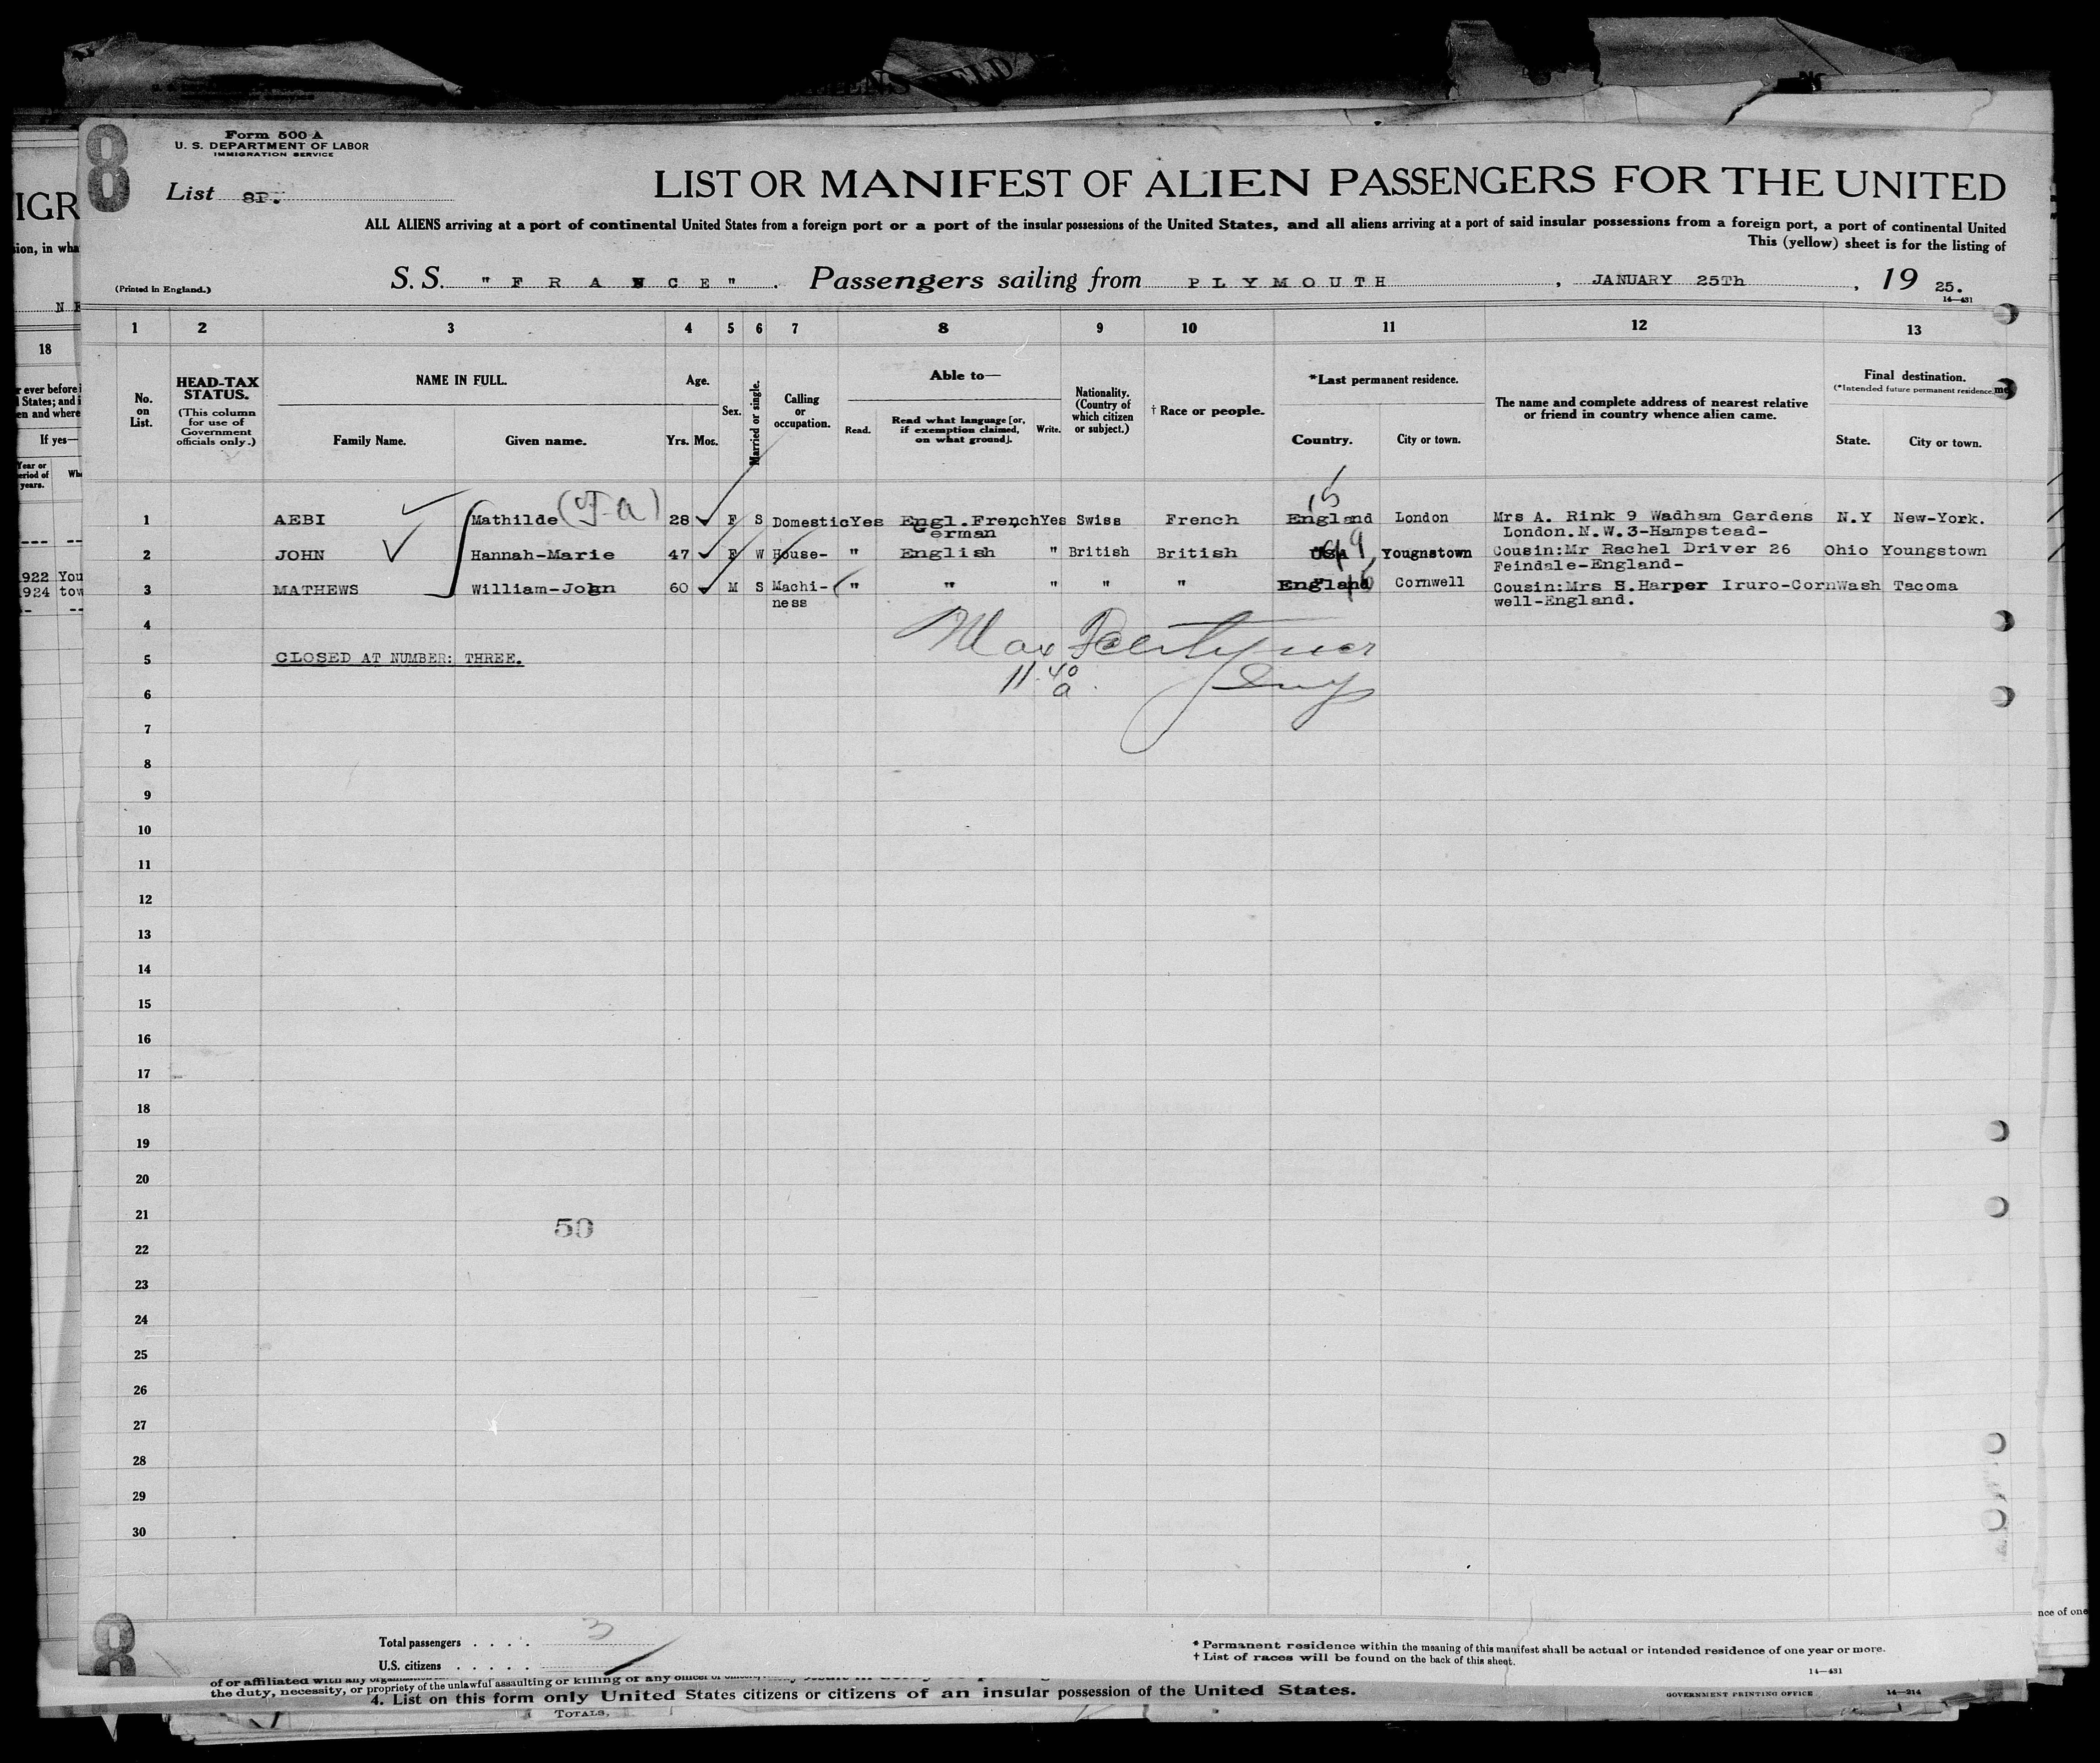 8
Form 500 A
U. S. DEPARTMENT OF LABOR
IMMIGRATION SERVICE
List 8P.
LIST OR MANIFEST OF ALIEN PASSENGERS FOR THE UNITED
ALL ALIENS arriving at a port of continental United States from a foreign port or a port of the insular possessions of the United States, and all aliens arriving at a port of said insular possessions from a foreign port, a port of continental United
This (yellow) sheet is for the listing of
(Printed in England.)
S. S. " F R A N C E " . Passengers sailing from P L Y M O U T H , JANUARY 25Th , 19 25.
14—431
1 2 3 4 5 6 7 8 9 10 11 12 13
No. on List.
HEAD-TAX STATUS.
(This column for use of Government officials only.)
NAME IN FULL.
Family Name. Given name.
Age.
Yrs. Mos.
Sex.
Married or single.
Calling or occupation.
Able to—
Read. Read what language [or, if exemption claimed, on what ground]. Write.
Nationality. (Country of which citizen or subject.)
† Race or people.
*Last permanent residence.
Country. City or town.
The name and complete address of nearest relative or friend in country whence alien came.
Final destination.
(*Intended future permanent residence
State. City or town.
15
1 AEBI Mathilde 28 F S Domestic Yes Engl.French Yes Swiss French England London Mrs A. Rink 9 Wadham Gardens N.Y New-York.
German London.N.W.3-Hampstead-
2 JOHN Hannah-Marie 47 F W House- " English " British British USA Yougnstown Cousin:Mr Rachel Driver 26 Ohio Youngstown
Feindale-England-
3 MATHEWS William-John 60 M S Machi- " " " " " England Cornwell Cousin:Mrs S.Harper Iruro-Corn Wash Tacoma
ness well-England.
4
5 CLOSED AT NUMBER: THREE.
Max
11 40 a
6
7
8
9
10
11
12
13
14
15
16
17
18
19
20
21
50
22
23
24
25
26
27
28
29
30
8
Total passengers . . . . 3
U.S. citizens . . . . .
* Permanent residence within the meaning of this manifest shall be actual or intended residence of one year or more.
† List of races will be found on the back of this sheet.
14—431
the duty, necessity, or propriety of the unlawful assaulting or killing of any officer
4. List on this form only United States citizens or citizens of an insular possession of the United States.
GOVERNMENT PRINTING OFFICE 14—214
TOTALS,
IGR
sion, in wha
18
If yes—
Year or period of years.
1922 You
1924 tow
nce of one